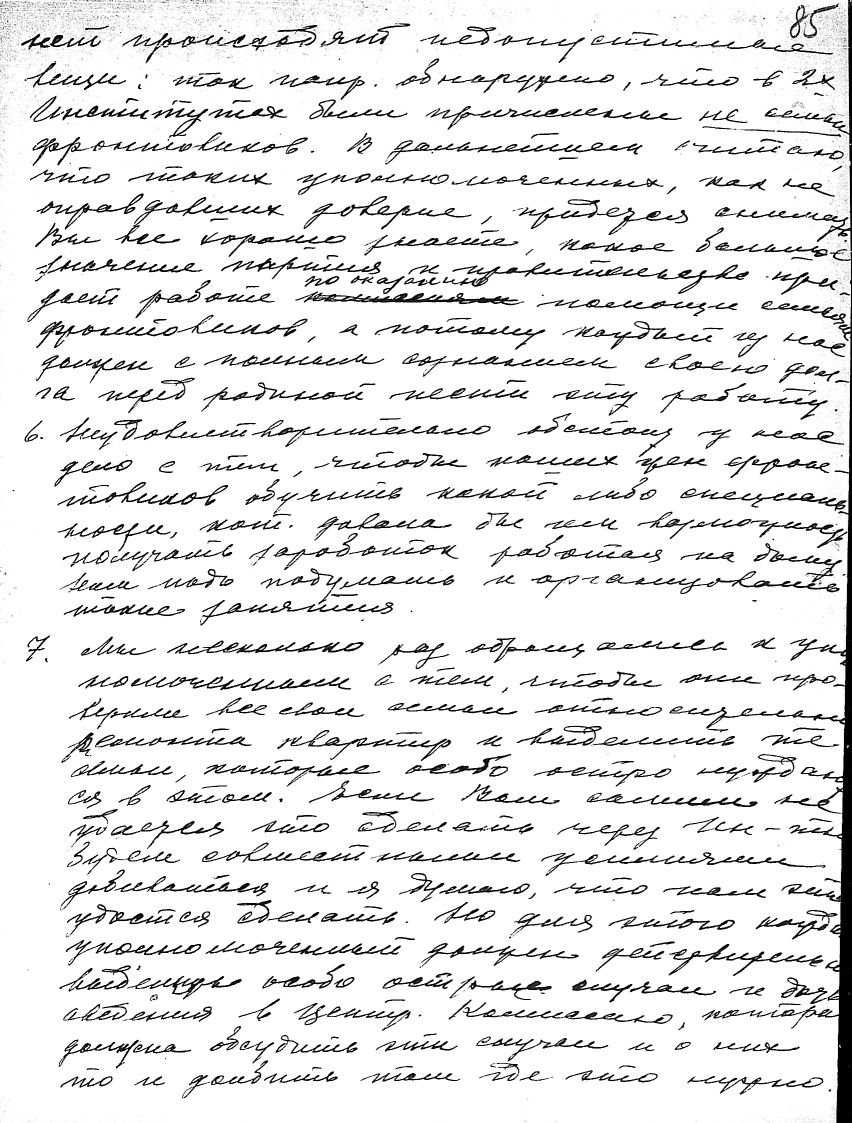 85
нет происходят недопустимые
вещи: так напр. обнаружено, что в 2х
Институтах были причислены не семьи
фронтовиков. В дальнейшем считаю,
что таких уполномоченных, как не
оправдавших доверие, придется снимать.
Вы все хорошо знаете, какое большое
значение партия и правительство при-
дает работе по оказанию помощи семьям
фронтовиков, а потому каждый из нас
должен с полным сознанием своего дол-
га перед родиной нести эту работу.
6. Неудовлетворительно обстоит у нас
дело с тем, чтобы наших жен фрон-
товиков обучить какой либо специаль-
ности, кот. давала бы им возможность
получать заработок работая на дому
нам надо подумать и организовать
такие занятия.
7. Мы несколько раз обращались к упол
номоченным с тем, чтобы они про-
верили все свои семьи относительно
ремонта квартир и выделить те
семьи, которые особо остро нуждаю
ся в этом. Если Вам самим не
удается это сделать через Ин-ты
будем совместными усилиями
добиваться и я думаю, что нам это
удастся сделать. Но для этого кажды
уполномоченный должен действительно
выделить особо острые случаи и дать
сведения в Центр. Комиссию, котора
должна обсудить эти случаи и о них
то и долбить там где это нужно.